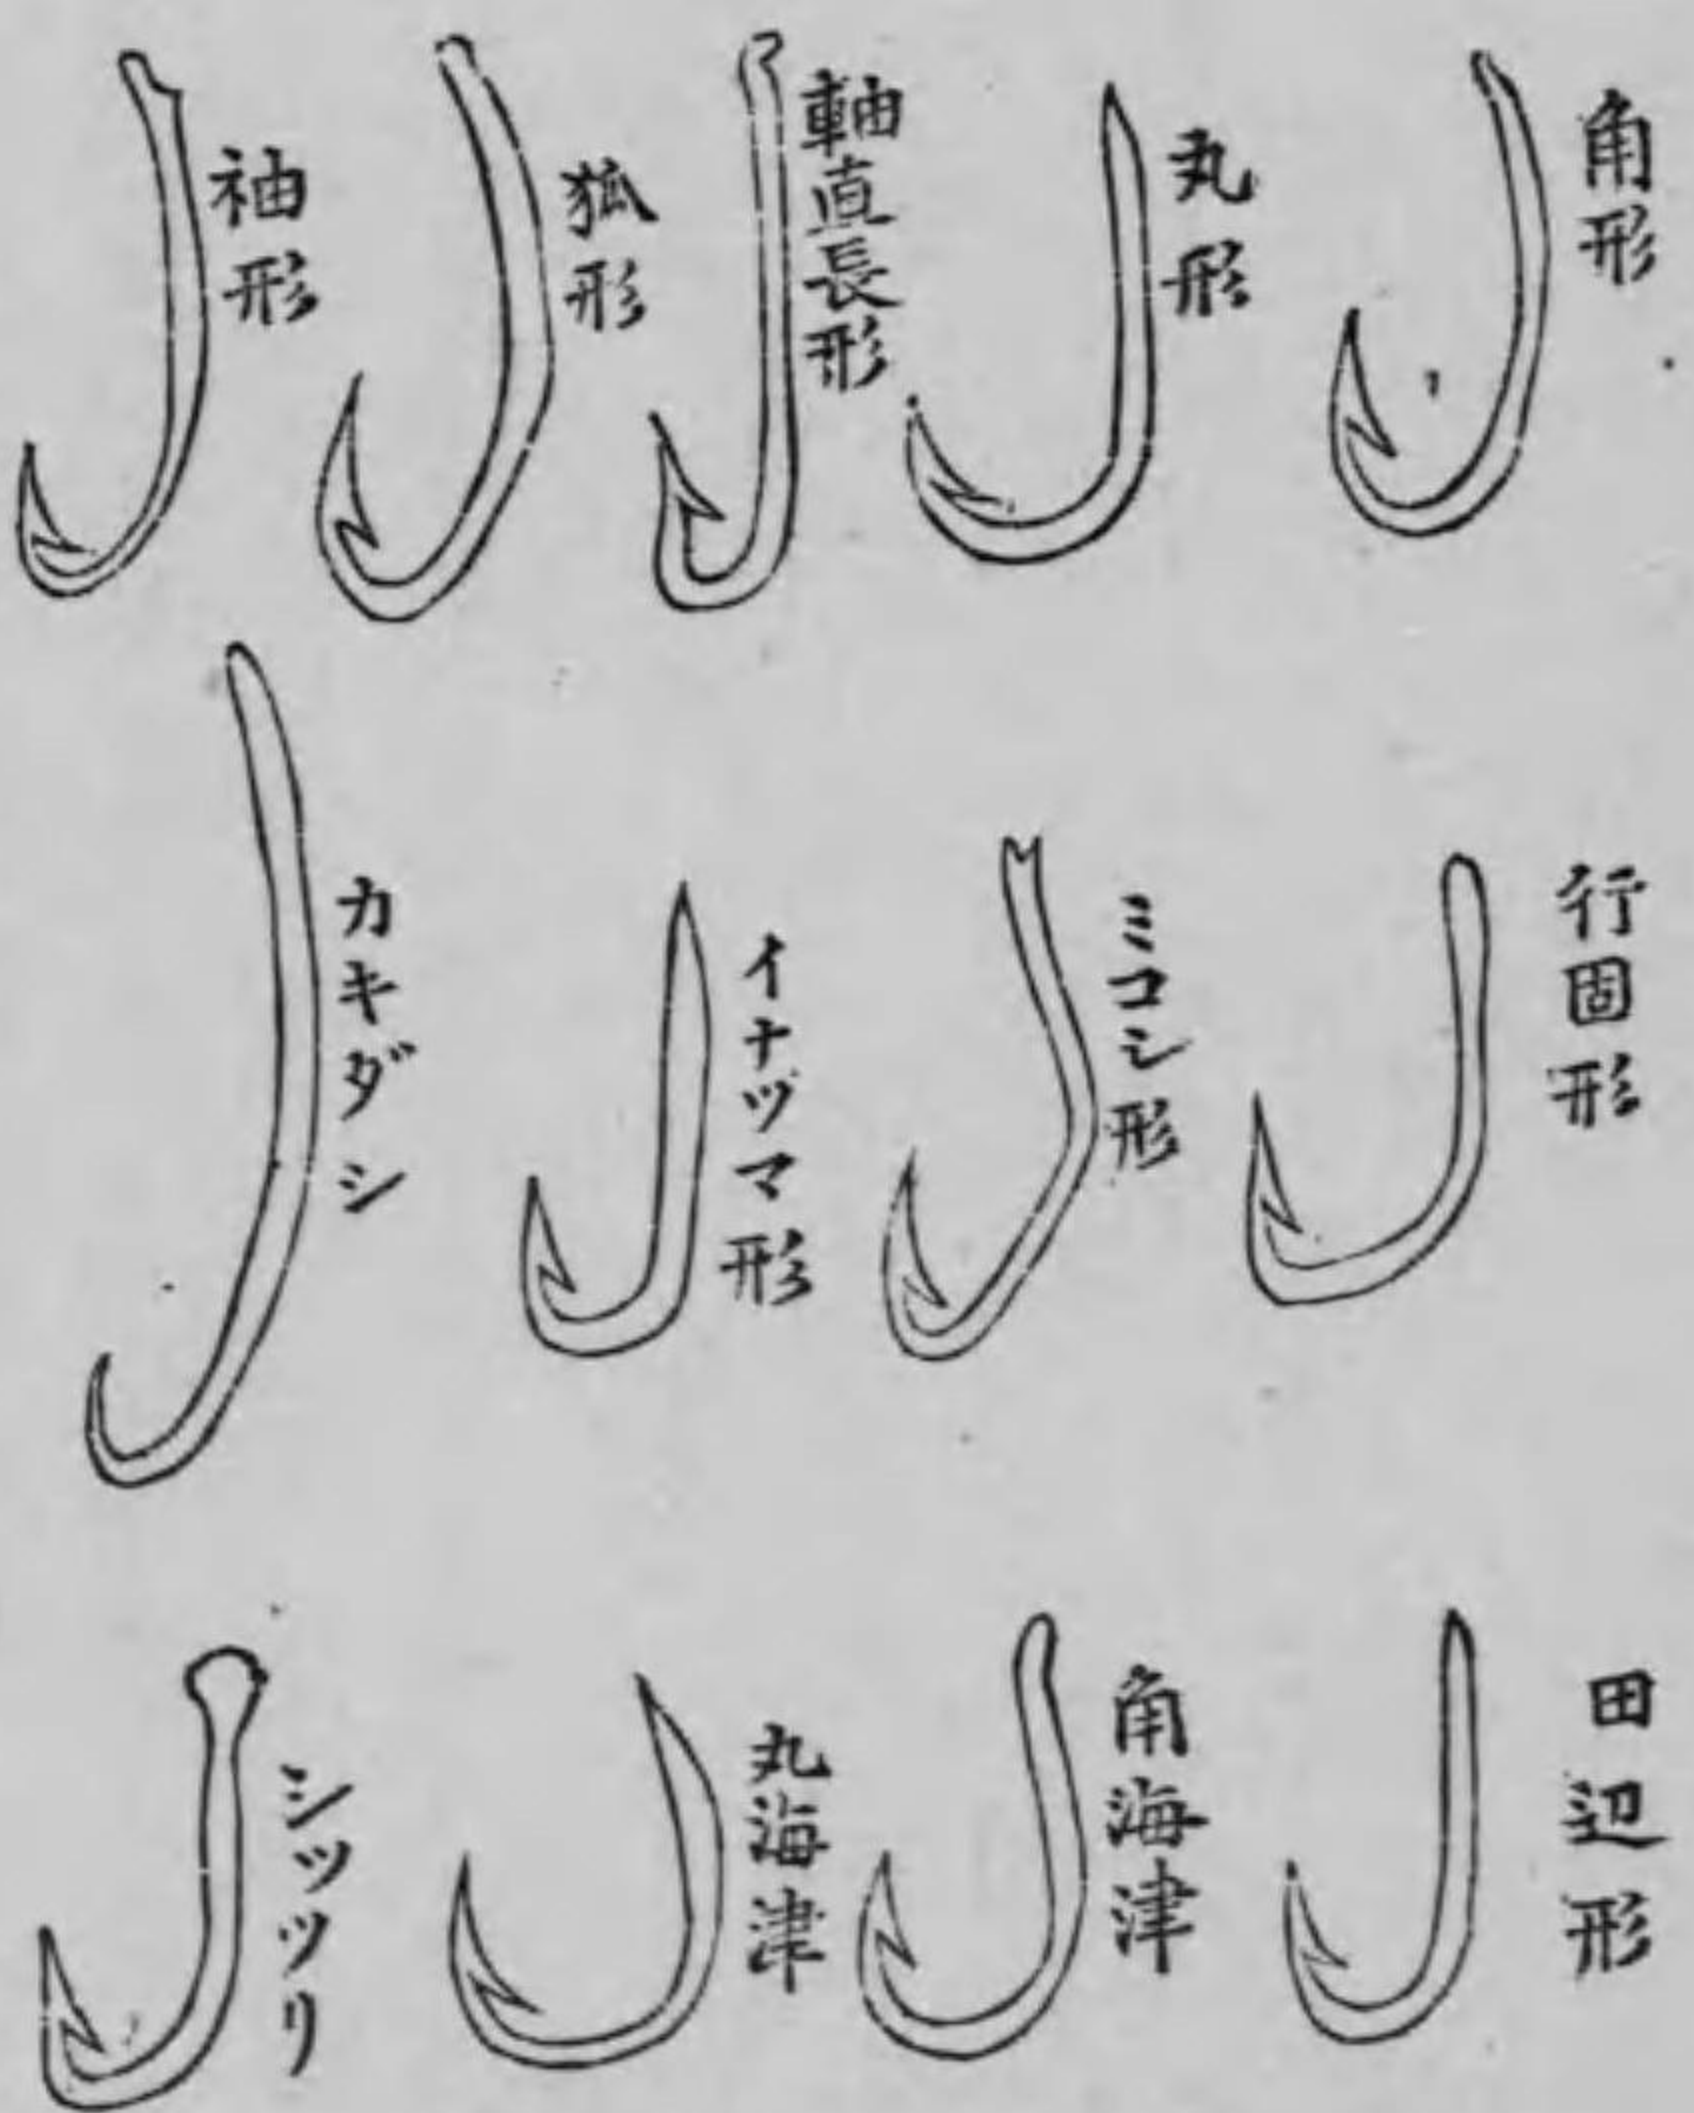 角形
丸形
軸直長形
狐形
袖形
行固形
ミコシ形
イナヅマ形
カキダシ
田辺形
角海津
丸海津
シツツリ